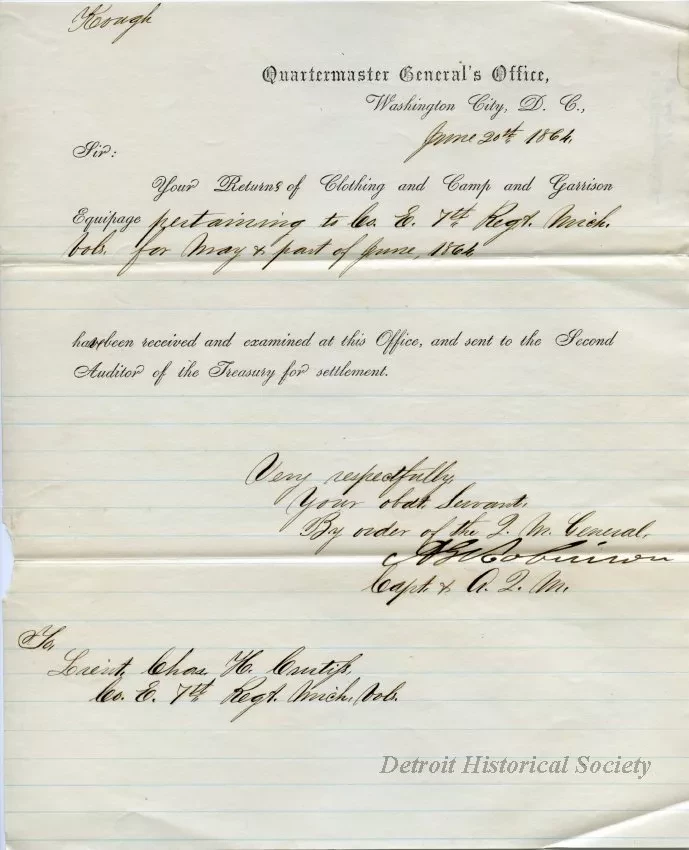 Kough
Quartermaster General's Office,
Washington City, D. C.,
June 20th 1864.
Sir:
Your Returns of Clothing and Camp and Garrison
Equipage pertaining to Co. E. 7th Regt. Mich.
Vols. for May & part of June, 1864
have been received and examined at this Office, and sent to the Second
Auditor of the Treasury for settlement.
Very respectfully,
Your obdt. Servant.
By order of the Q. M. General,
Robinson
Capt. & A. Q. M.
To,
Lieut. Chas. H.
Co. E. 7th Regt. Mich. Vols.
Detroit Historical Society